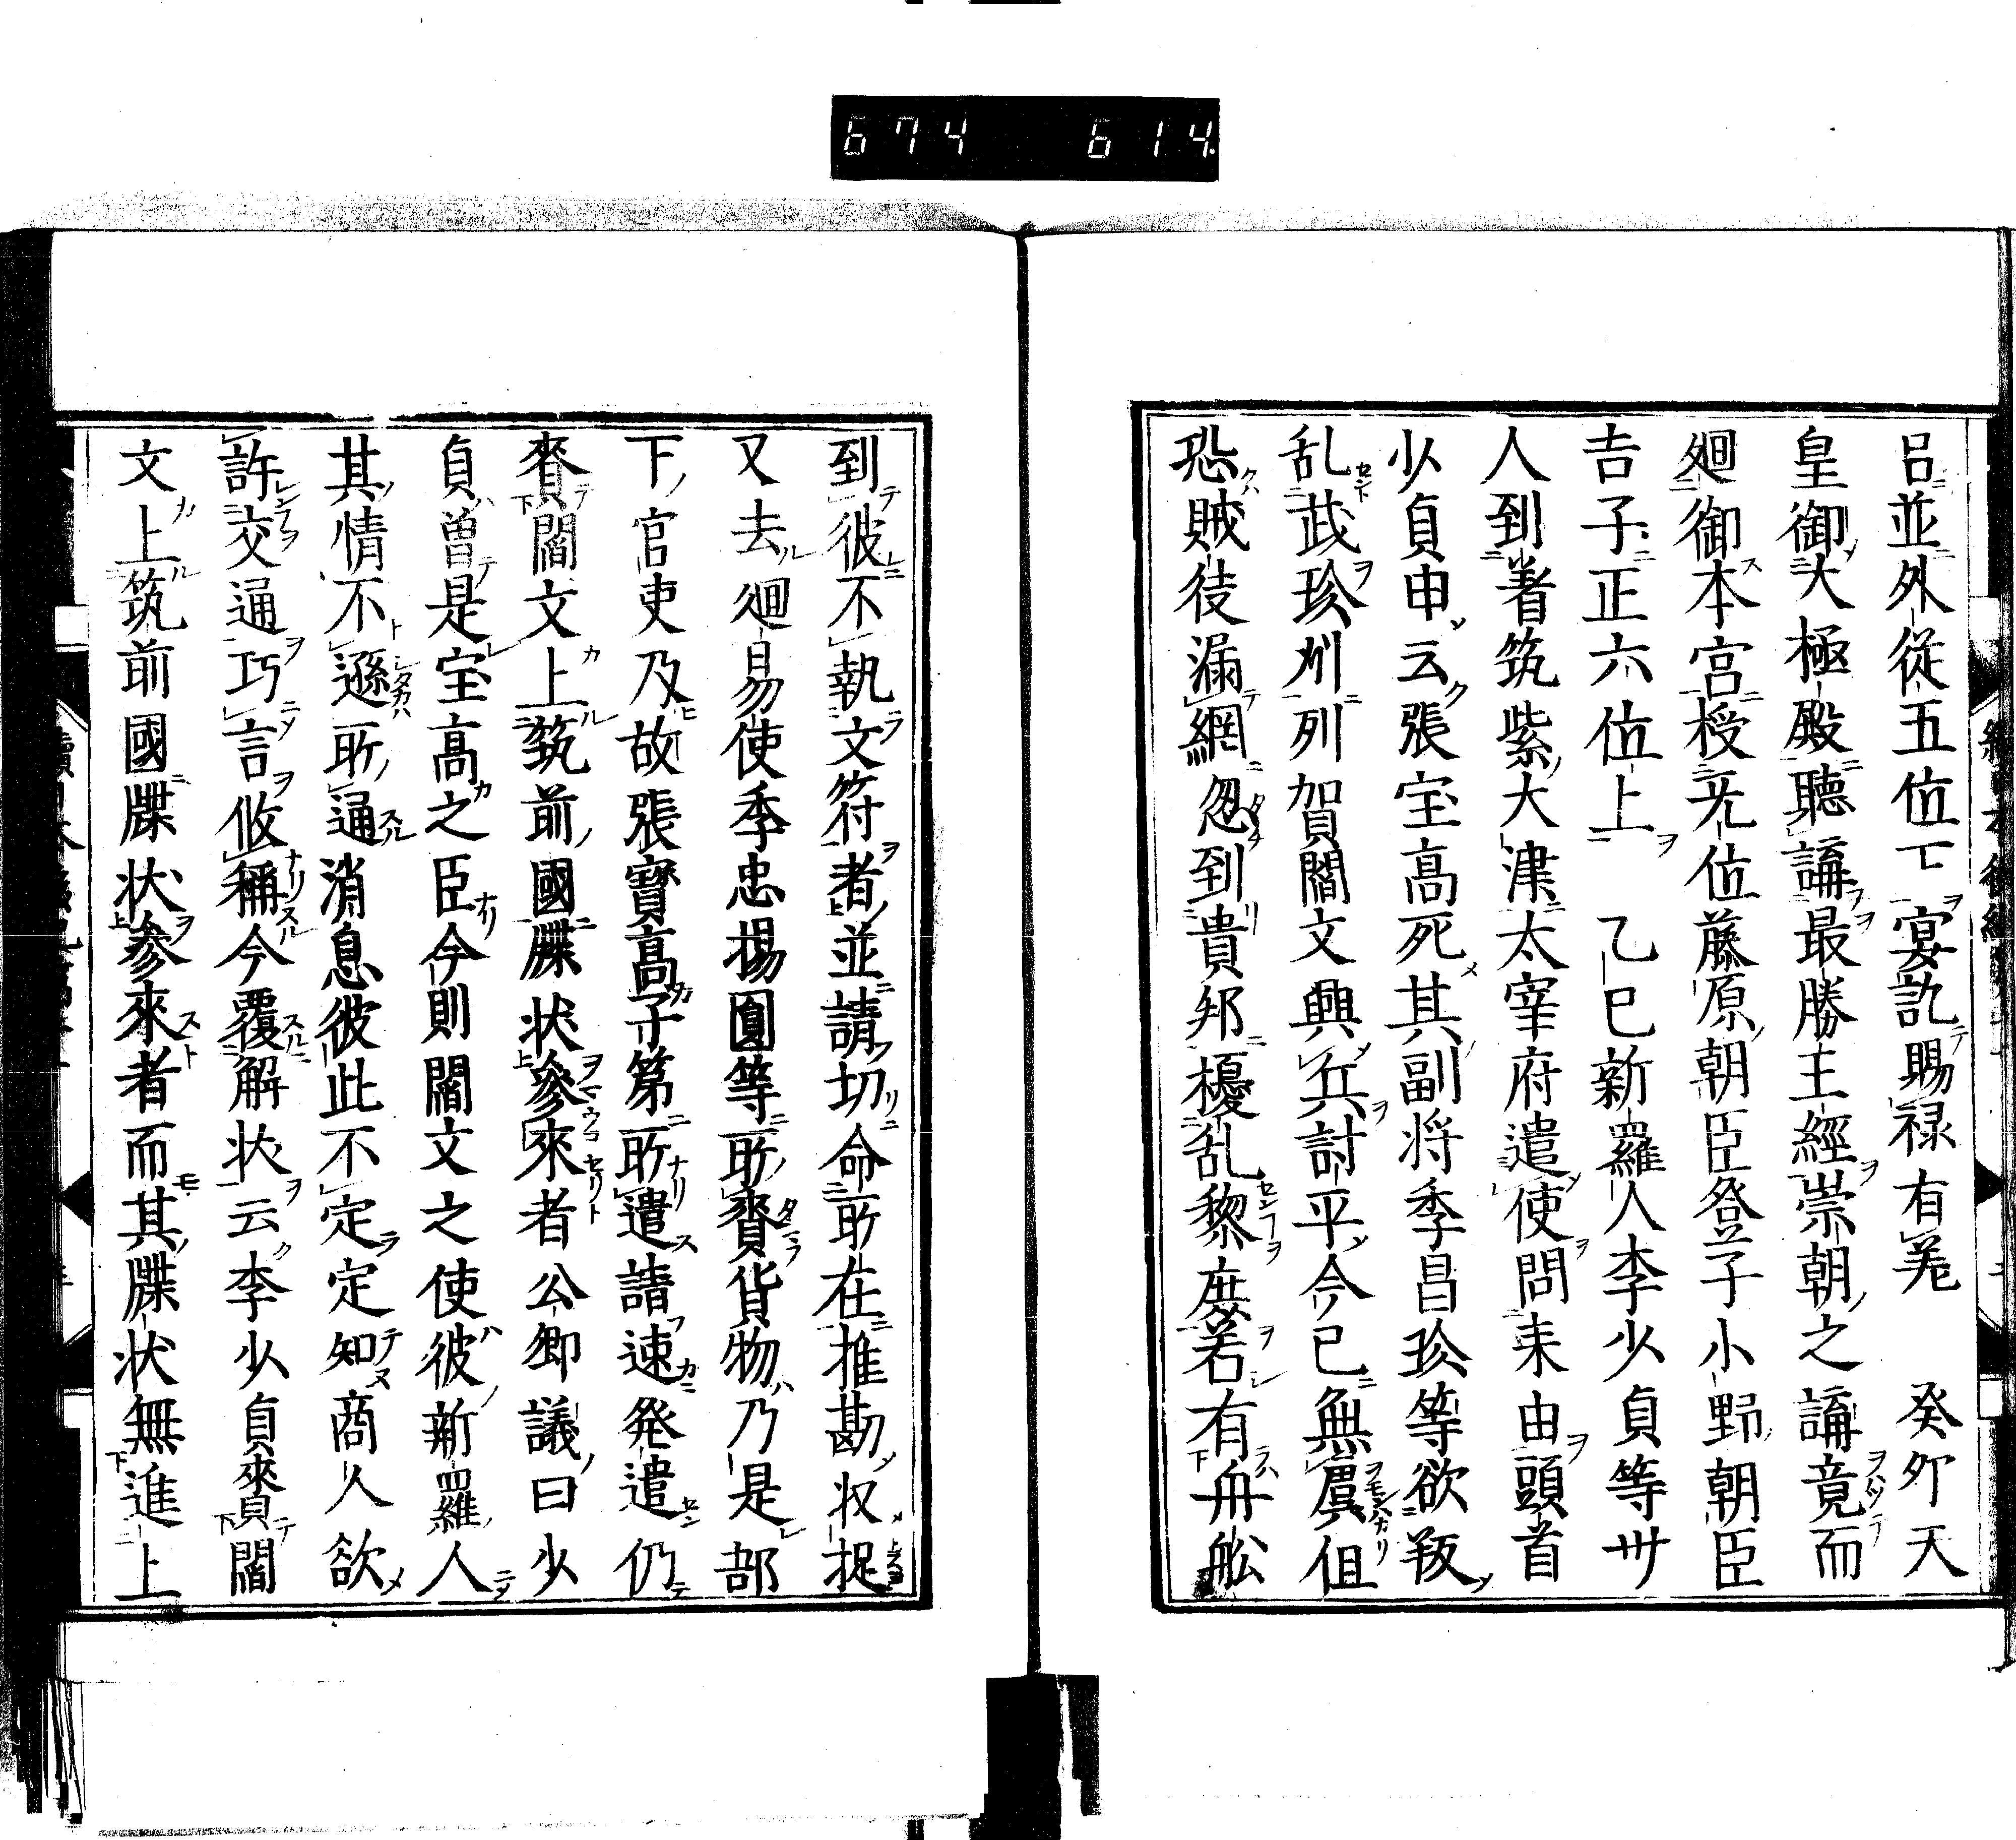 674 614
呂並外從五位下宴訖賜禄有差 癸夘天
皇御大極殿聴講最勝王經崇朝之講竟而
廻御本宮授无位藤原朝臣登子小野朝臣
吉子正六位上 乙巳新羅人李少貞等卅
人到著筑紫大津太宰府遣使問来由頭首
少貞申云張宝高死其副将李昌珍等欲叛
乱武珍刕列賀閻文興兵討平今已無虞但
恐賊徒漏網忽到貴邦擾乱黎庶若有舟舩
到彼不執文符者並請切命所在推勘収捉
又去廻易使李忠揚圓等所賷貨物乃是部
下官吏及故張寶高子弟所遣請速発遣仍
賷閻文上筑前國牒状參來者公卿議曰少
貞曽是宝高之臣今則閻文之使彼新羅人
其情不遜所通消息彼此不定定知商人欲
許交通巧言攸稱今覆解状云李少貞賷閻
文上筑前國牒状參來者而其牒状無進上